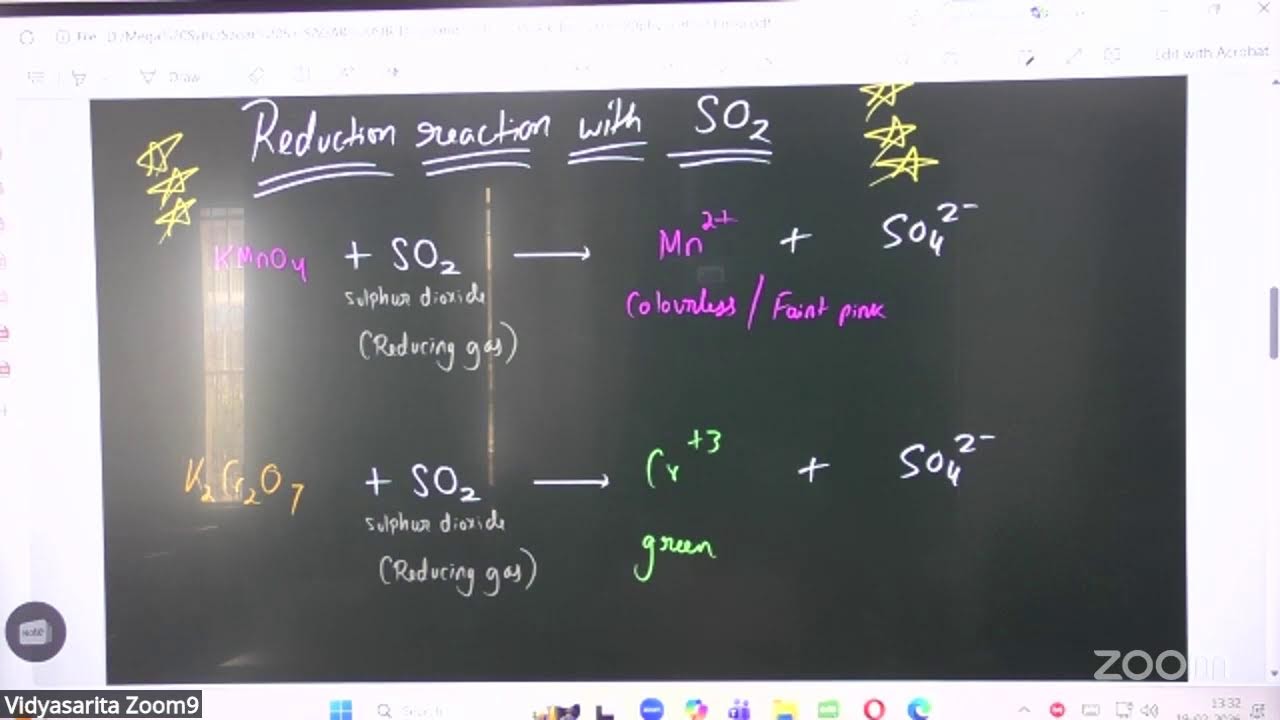 File
Draw
Edit with Acrobat
Reduction reaction with SO₂
KMnO₄ + SO₂ ⟶ Mn²⁺ + SO₄²⁻
sulphur dioxide
(Reducing gas)
Colourless / Faint pink
K₂Cr₂O₇ + SO₂ ⟶ Cr⁺³ + SO₄²⁻
sulphur dioxide
(Reducing gas)
green
zoom
Vidyasarita Zoom9
Search
13:32